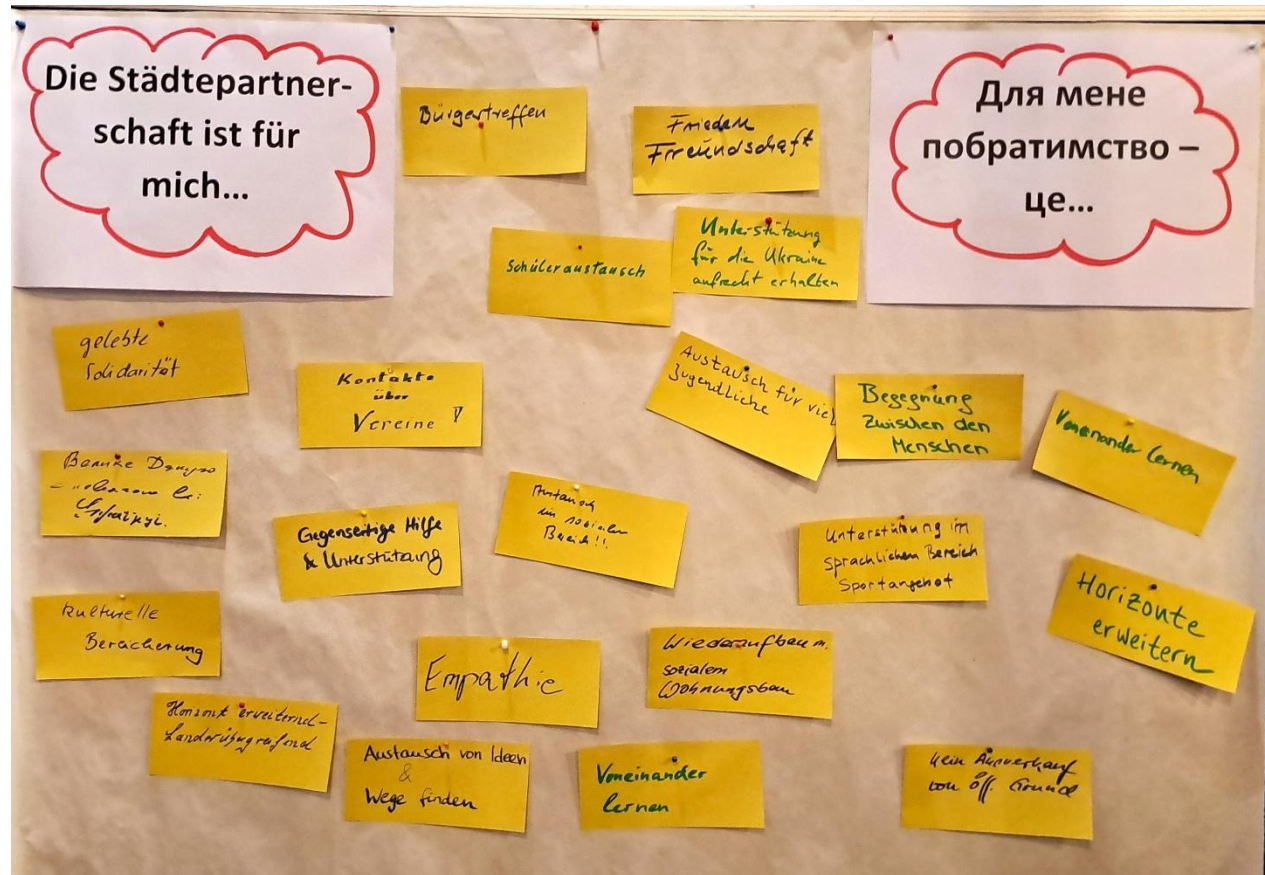 Die Städtepartner-
schaft ist für
mich...
Для мене
побратимство –
це...
Bürgertreffen
Frieden
Freundschaft
Schüleraustausch
Unterstützung
für die Ukraine
aufrecht erhalten
gelebte
Solidarität
Kontakte
über
Vereine !
Austausch für viel
Jugendliche
Begegnung
Zwischen den
Menschen
Voneinander lernen
Gegenseitige Hilfe
& Unterstützung
Austausch
im sozialen
Bereich!!
Unterstützung im
sprachlichen Bereich
Sportangebot
Horizonte
erweitern
kulturelle
Bereicherung
Empathie
Wiederaufbau m.
sozialem
Wohnungsbau
Horizont erweiternd-
Länderübergreifend
Austausch von Ideen
&
Wege finden
Voneinander
lernen
kein Ausverkauf
von öff. Grund